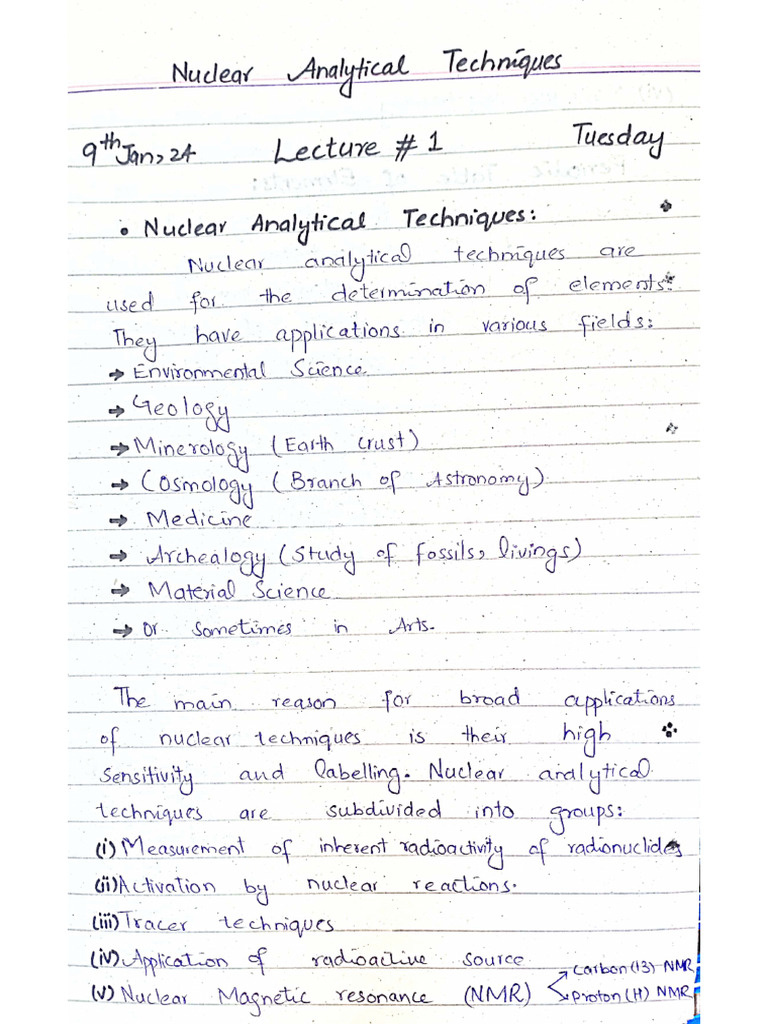 Nuclear Analytical Techniques
9th Jan, 24 Lecture # 1 Tuesday
• Nuclear Analytical Techniques:
Nuclear analytical techniques are
used for the determination of elements.
They have applications in various fields:
→ Environmental Science
→ Geology
→ Minerology (Earth crust)
→ Cosmology (Branch of Astronomy)
→ Medicine
→ Archealogy (Study of fossils, livings)
→ Material Science
→ Or sometimes in Arts.
The main reason for broad applications
of nuclear techniques is their high
sensitivity and labelling. Nuclear analytical
techniques are subdivided into groups:
(i) Measurement of inherent radioactivity of radionuclides
(ii) Activation by nuclear reactions.
(iii) Tracer techniques
(iv) Application of radioactive source
(v) Nuclear Magnetic resonance (NMR) → Carbon(13) NMR
→ Proton(H) NMR